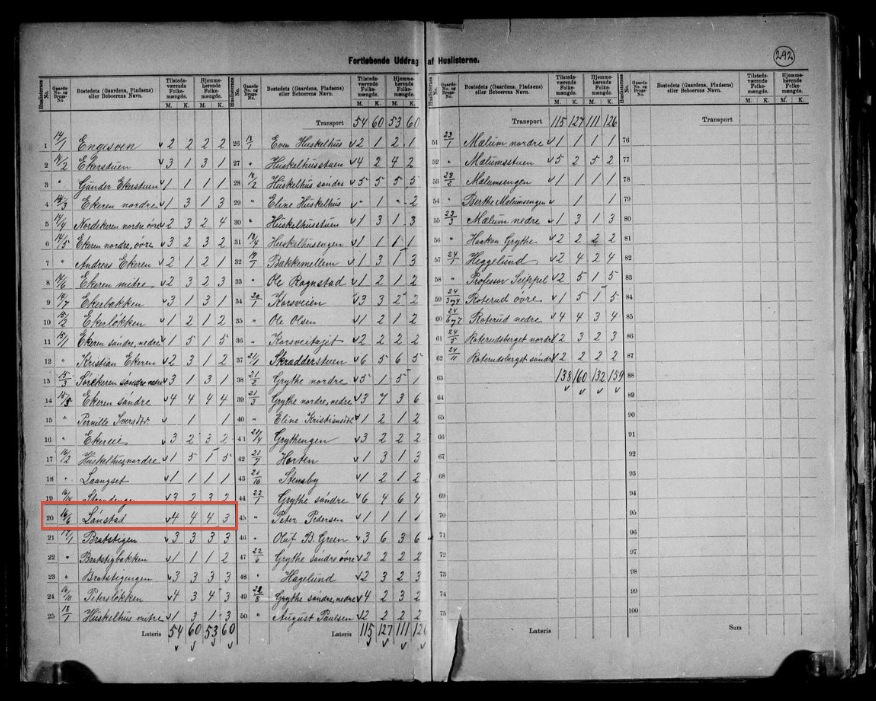 292
Fortløbende Uddrag af Huslisterne.
Huslisternes No.
Gaards-No. og Brugs-No.
Bostedets (Gaardens, Pladsens) eller Beboerens Navn.
Tilstedeværende Folkemængde.
Hjemmehørende Folkemængde.
M. K. M. K.
1 14/1 Engesveen 2 2 2 2
2 14/2 Ekerstuen 3 1 3 1
3 " Gunder Ekerstuen 1 1 1 1
4 14/3 Ekeren nordre 1 3 1 3
5 14/4 Nordekeren nordre øvre 2 3 2 4
6 14/5 Ekeren nordre, øvre 3 2 3 2
7 " Andreas Ekeren 2 1 2
8 14/6 Ekeren mitre 2 3 2 3
9 14/7 Ekerbakken 3 1 3 1
10 15/2 Ekerløkken 1 2 1 2
11 15/1 Ekeren søndre, nedre 1 5 1 5
12 " Kristian Ekeren 2 3 1 2
13 15/3 Sørekeren søndre 3 1 3 1
14 Ekeren søndre 4 4 4 4
15 " Pernille Iversdtr 1 1
16 " Ekereie 3 2 3 2
17 16/2 Huskelhus nordre 1 5 1 5
18 " Laangset 1 1 1 1
19 3 2 3 2
20 16/6 Lønstad 4 4 4 3
21 17/1 Bratstigen 3 3 3 3
22 " Bratstigbakken 1 1 1 2
23 " Bratstigengen 3 3 3 3
24 Petersløkken 4 3 4 3
25 18/1 Huskelhus mitre 1 3 1 3
Lateris 54 60 53 60
Transport 54 60 53 60
26 18/1 Even Huskelhus 2 1 2 1
27 " Huskelhusstuen 4 2 4 2
28 18/2 Huskelhus søndre 5 5 5 5
29 " Eline Huskelhus " 1 " 2
30 " Huskelhusstuen 1 3 1 3
31 Huskelhusengen 1 1 1 1
32 Bakkemellem 1 3 1 3
33 " Ole Rognstad 1 2 1 2
34 20/1 Korsveien 3 3 2 2
35 " Ole Olsen 1 2 1 2
36 " Korsveitajet 2 2 2 2
37 21/1 Skradderstuen 6 5 6 5
38 21/2 Grythe nordre 5 1 5 1
39 21/3 Grythe nordre, nedre 3 7 3 6
40 " Eline Kristiansdtr 1 2 1 2
41 21/4 Grythengen 3 2 2 2
42 Horten 1 3 1 3
43 21/10 Stensby 1 2 1 2
44 22/1 Grythe søndre 6 4 6 4
45 " Peter Pedersen 1 1 1 1
46 " Oluf B. Green 3 6 3 6
47 Grythe søndre øvre 2 2 2 2
48 " Hagelund 2 3 2 3
49 Grythe søndre, nedre 4 2 3 2
50 " August Paulsen 2 2 2 2
Lateris 115 127 111 126
Transport 115 127 111 126
51 23/1 Mælum nordre 1 1 1 1
52 " Mælumsstuen 5 2 5 2
53 23/2 Mælumsengen 1 1 1 1
54 " Berthe Mælumsengen 1 1
55 23/3 Mælum nedre 1 3 1 3
56 " Haaken Grythe 2 2 2 2
57 24/1 Heggelund 2 4 2 4
58 " Professor Seippel 2 5 1 5
59 Roterud øvre 1 5 1 5
60 Roterud nedre 4 4 3 4
61 24/5 Roterudsberget nordre 2 3 2 3
62 24/11 Roterudsberget søndre 2 2 2 2
63 138 160 132 159
64
65
66
67
68
69
70
71
72
73
74
75
Lateris
Transport
76
77
78
79
80
81
82
83
84
85
86
87
88
89
90
91
92
93
94
95
96
97
98
99
100
Sum